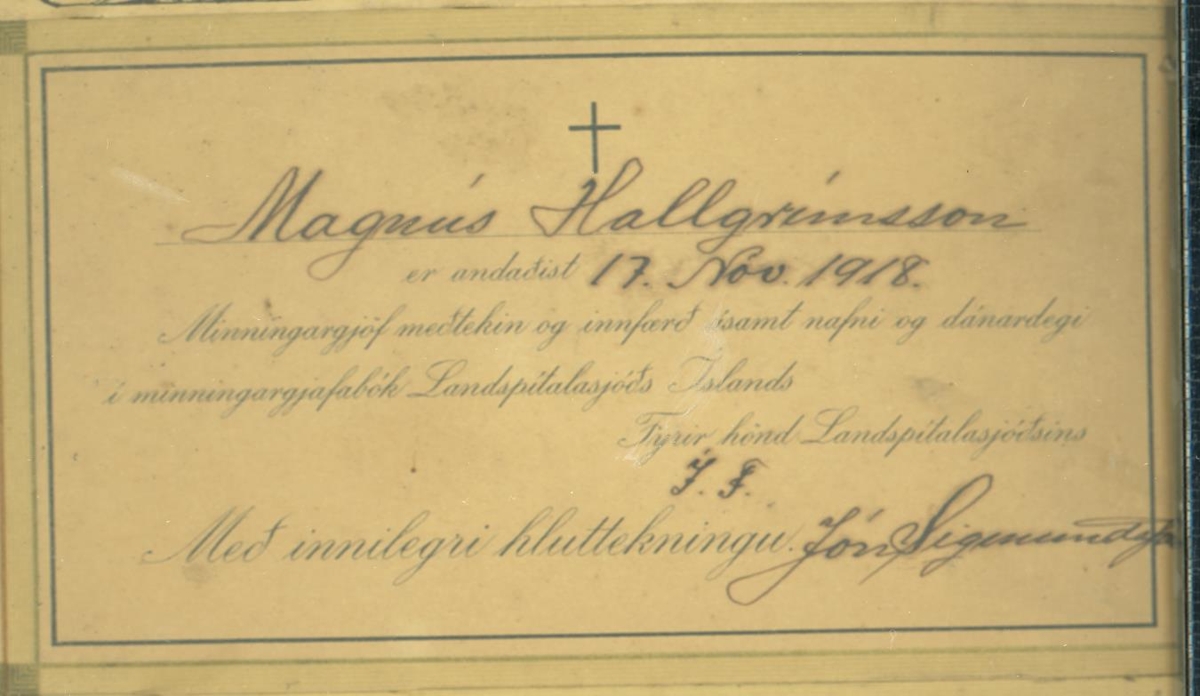 Magnús Hallgrímsson
er andaðist 17. Nóv. 1918.
Minningargjöf meðtekin og innfærð ásamt nafni og dánardegi
í minningargjafabók Landspítalasjóðs Íslands
Fyrir hönd Landspítalasjóðsins
J. F.
Með innilegri hluttekningu. Jón Sigmundsson